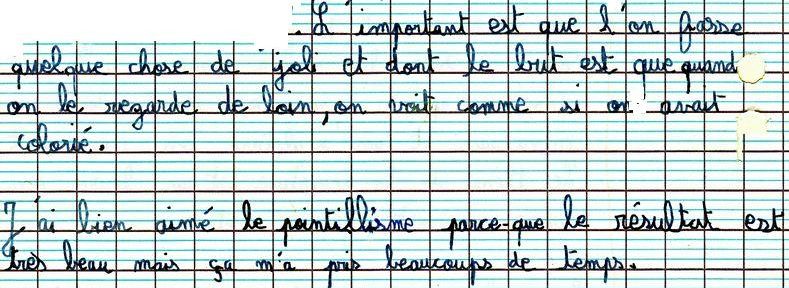 . L'important est que l'on fasse
quelque chose de joli et dont le but est que quand
on le regarde de loin, on voit comme si on avait
colorié.
J'ai bien aimé le pointillisme parce-que le résultat est
très beau mais ça m'a pris beaucoups de temps.